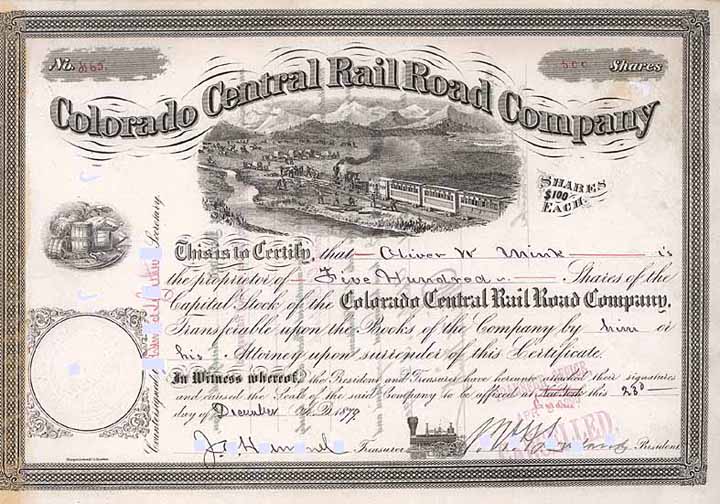 No. 863.
500 Shares
Colorado Central Rail Road Company
SHARES
$100
EACH
This is to Certify, that Oliver W Mink is
the proprietor of Five Hundred Shares of the
Capital Stock of the Colorado Central Rail Road Company,
Transferable upon the Books of the Company by him or
his Attorney upon surrender of this Certificate.
In Witness whereof, the President and Treasurer have hereunto attached their signatures
and caused the Seal of the said Company to be affixed at New York this 23d
day of December A.D. 1879
Treasurer
President
Countersigned,
Secretary.
CANCELLED.